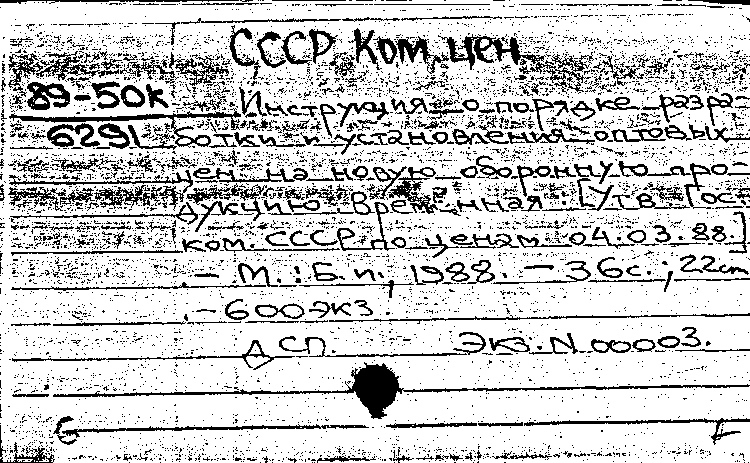 СССР. Ком. цен.
89-50к
6291
Инструкция о порядке разра-
ботки и установления оптовых
цен на новую оборонную про-
дукцию. Временная : [Утв. Гос.
ком. СССР по ценам 04.03.88.]
.— М. : Б.и., 1988. — 36с. ; 22cm
.— 600экз.
ДСП. Экз. N 00003.